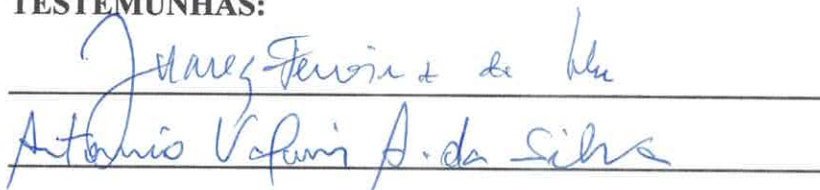 TESTEMUNHAS:
Juarez Ferreira de
Antonio A. da Silva